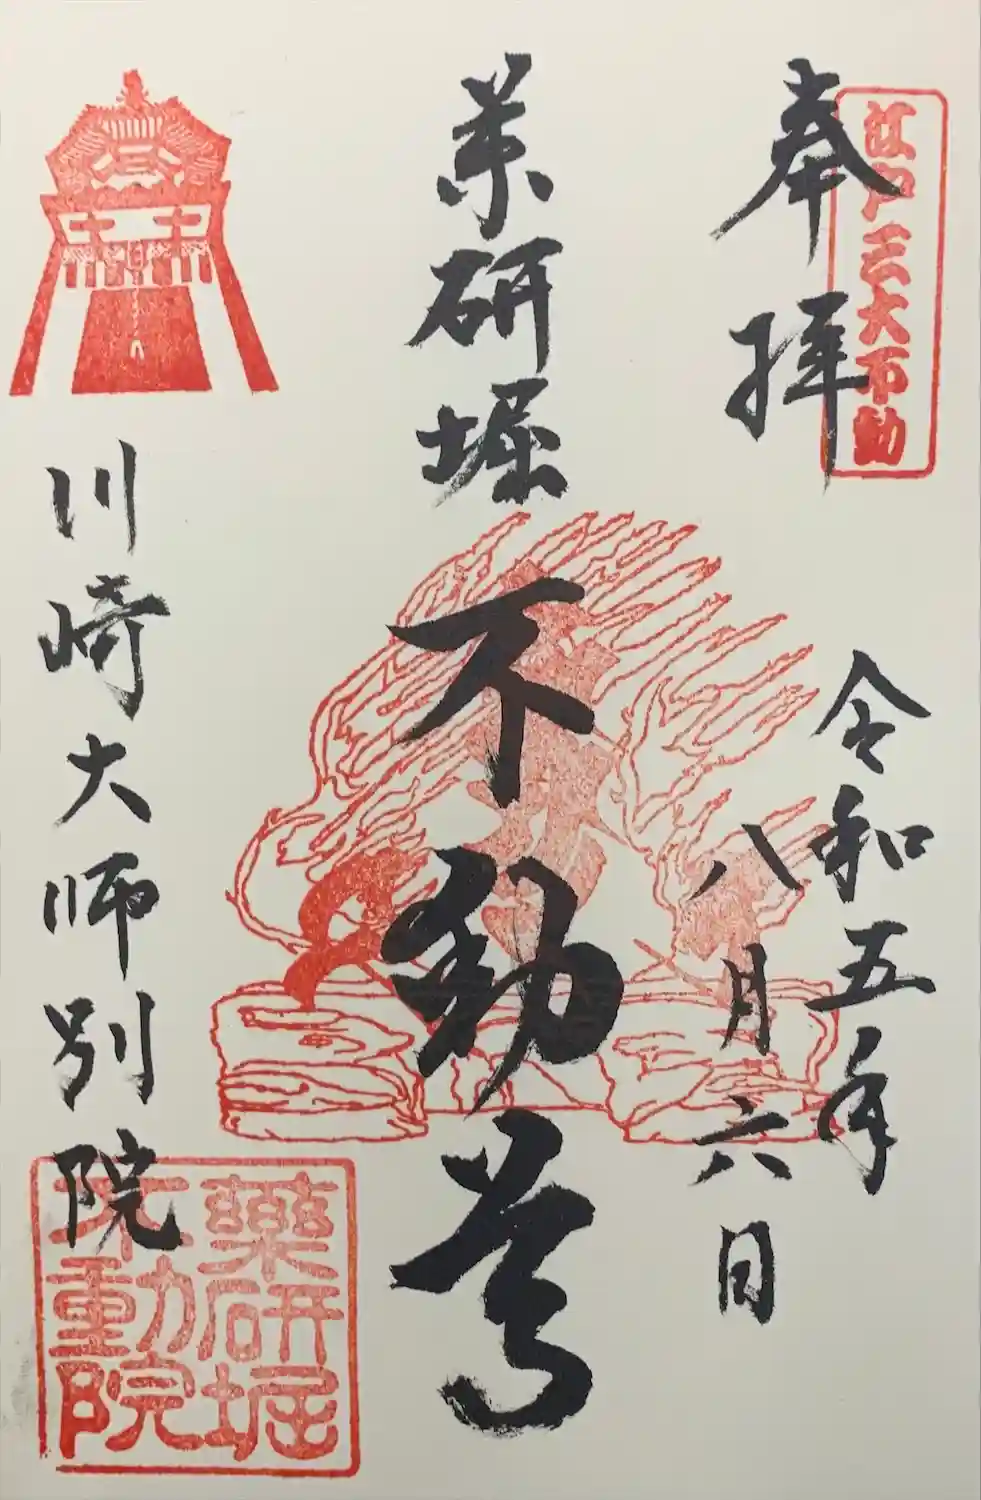 江戸三大不動
奉拝
令和五年
八月六日
薬研堀
不動尊
川崎大師別院
薬研堀
不動院